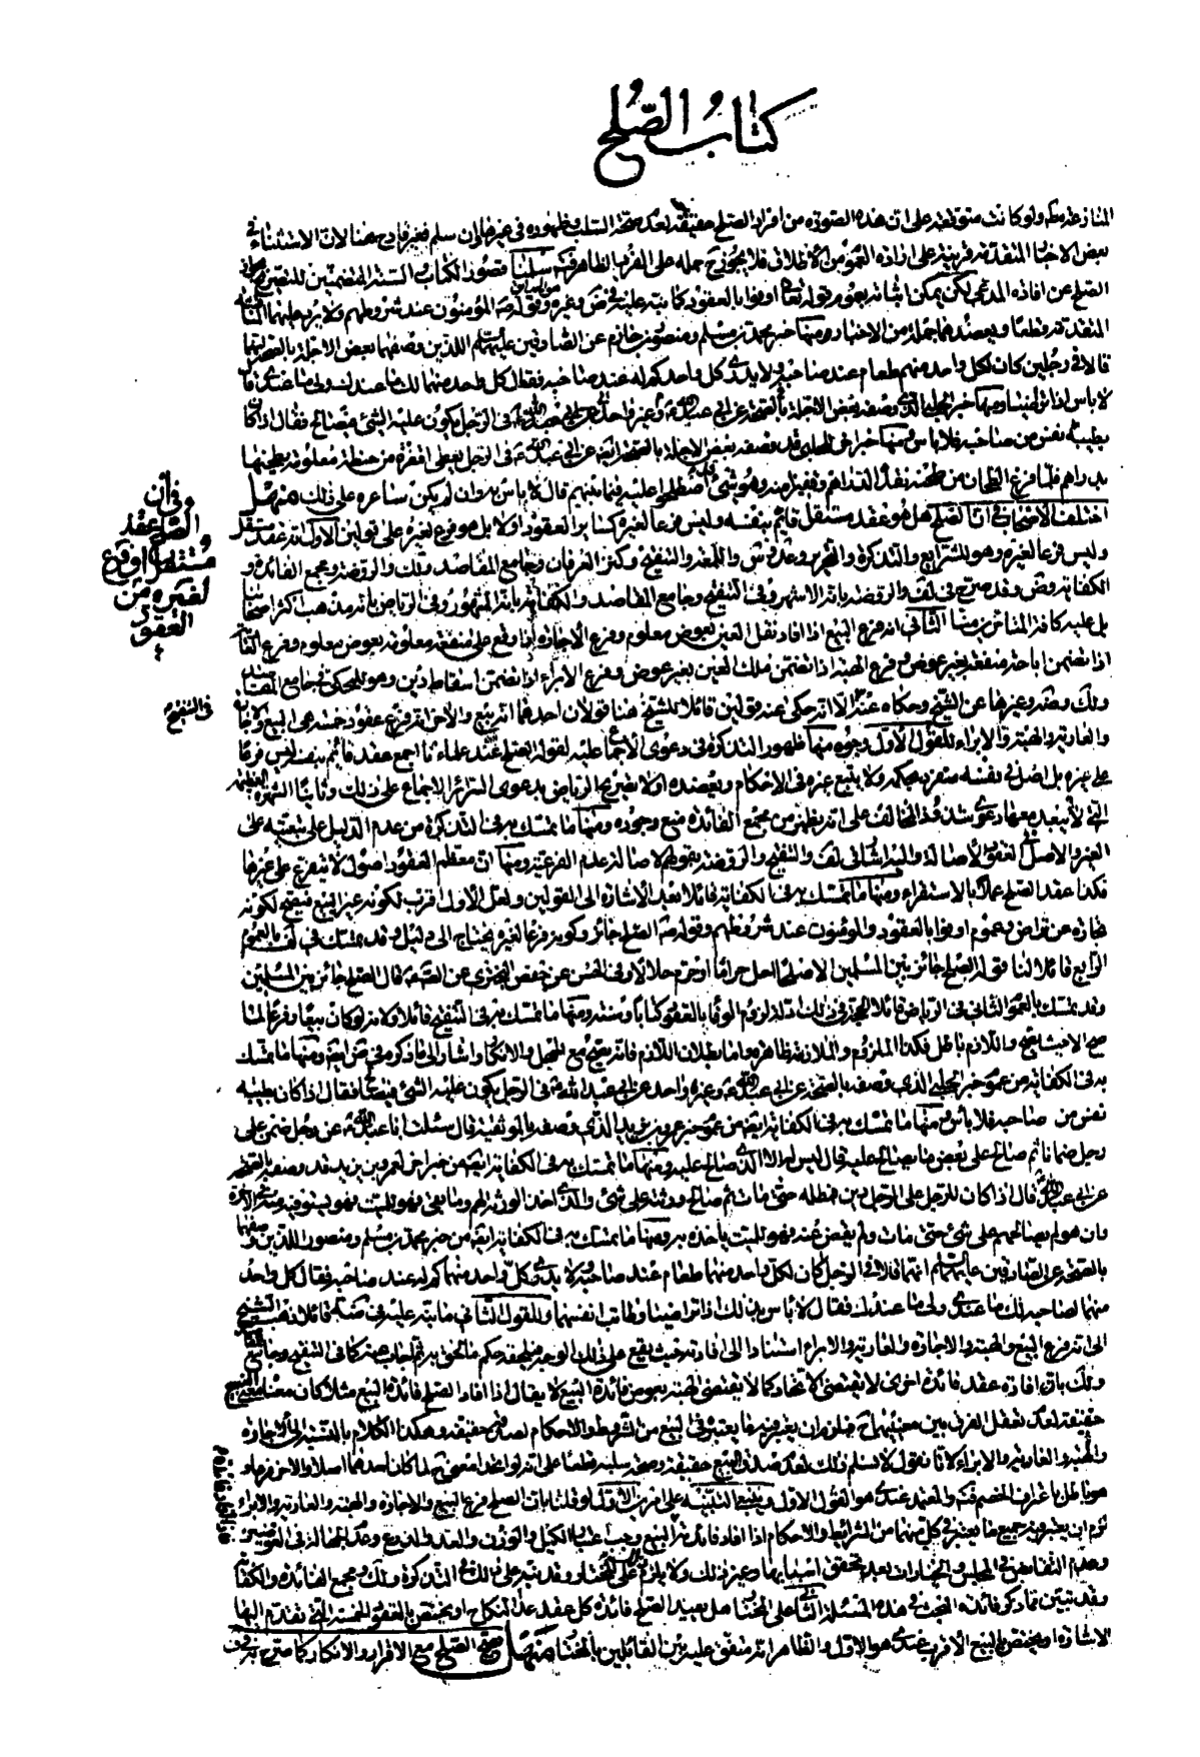 كتاب الصلح
المنازعة مطلقا ولو كانت متوقفة على ان هذه الصورة من افراد الصلح حقيقة لعدم صحة السلب وظهوره في غيرها وان سلم فغير قادح هنا لان الاستثناء في
بعض الاخبار المتقدمة قرينة على ارادة العموم من الاطلاق فلا يجوز ح حمله على الفرد الظاهر فتم سلمنا قصور الكتاب السنة المتضمنين
الصلح عن افادة المدعى لكن يمكن اثباته بعموم قوله تعالى اوفوا بالعقود كما نبه عليه في ض وغيره وقوله المؤمنون عند شروطهم ولا يرد عليهما
المتقدمة قطعا ويعضدهما جملة من الاخبار ومنها خبر محمد بن مسلم ومنصور بن حازم عن الصادقين عليهما السلم اللذين وصفهما بعض الاجلة بالصحة
قالا في رجلين كان لكل واحد منهم طعام عند صاحبه ولا يدرى كل واحد كم له عند صاحبه فقال كل واحد منهما لك ما عندك ولى ما عندى قا
لا باس اذا تراضيا ومنها خبر الحلبي الذى وصفه بعض الاجلة بالصحة عن ابي عبد الله ع وغير واحد عن ابي عبد الله ع في الرجل يكون عليه الشئ فيصالح فقال اذا كان
بطيبة نفس من صاحبه فلا باس ومنها خبر اخر للحلبي قد وصفه بعض الاجلة بالصحة ايضا عن ابي عبد الله ع في الرجل يعطى اقفزة من حنطة معلومة يطحنها
بدراهم فلما فرغ الطحان من طحنه نقد الدراهم وقفيز منه وهو شئ اصطلحوا عليه فيما بينهم قال لا باس به وان لم يكن ساعره على ذلك منهل
اختلف الاصحاب في ان الصلح هل هو عقد مستقل قائم بنفسه وليس فرعا لغيره كسائر العقود او لا بل هو فرع لغيره على قولين الاول انه عقد مستقل
وليس فرعا لغيره وهو للشرايع والتذكرة والتحرير وعد وس واللمعة والتنقيح وكنز العرفان وجامع المقاصد ولك والروضة ومجمع الفائدة و
الكفاية وض وقد صرح في لف والروضة بانه الاشهر وفي التنقيح وجامع المقاصد والكفاية بانه المشهور وفي الرياض بانه مذهب اكثر اصحابنا
بل عليه كافة المتاخرين منا الثاني انه فرع البيع اذا افاد نقل العين بعوض معلوم وفرع الاجارة اذا وقع على منفعة معلومة بعوض معلوم وفرع
اذا تضمن اباحة منفعة بغير عوض وفرع الهبة اذا تضمن ملك العين بغير عوض وفرع الابراء اذا تضمن اسقاط دين وهو للمحكى في جامع المقاصد
ولك وضة وغيرها عن الشيخ وحكاه عنه الا انه حكى عنه قولين قائلا للشيخ هنا قولان احدهما انه بيع والاخر انه فرع عقود خمسة هي البيع والاجارة
والعارية والهبة والابراء للقول الاول وجوه منها ظهور التذكرة في دعوى الاجماع عليه لقوله الصلح عند علماءنا اجمع عقد قائم بنفسه ليس فرعا
على غيره بل اصل في نفسه منفرد بحكمه ولا يتبع غيره في الاحكام ويعضده اولا تصريح الرياض بدعوى السرائر الاجماع على ذلك وثانيا الشهرة العظيمة
التي لا يبعد معها دعوى شذوذ المخالف على انه يظهر من مجمع الفائدة منع وجوده ومنها ما تمسك به في التذكرة من عدم الدليل على تبعيته على
الغير والاصل في العقود الاصالة واليه اشار في لف والتنقيح والروضة بقولهم لاصالة عدم الفرعية ومنها ان معظم العقود اصول لا يتفرع على غيرها
فكذا عقد الصلح عملا بالاستقراء ومنها ما تمسك به في الكفاية قائلا بعد الاشارة الى القولين ولعل الاول اقرب لكونه غير البيع فيصح لكونه
تجارة عن تراض وعموم اوفوا بالعقود والمؤمنون عند شروطهم وقوله ص الصلح جائز وكونه فرعا لغيره يحتاج الى دليل وقد تمسك في لف بالعموم
الرابع قائلا لنا قوله الصلح جائز بين المسلمين الا صلحا احل حراما او حرم حلالا وفي الحسن عن حفص البختري عن الصادق قال الصلح جائز بين المسلمين
وقد تمسك بالعموم الثاني في الرياض قائلا الحجة في ذلك ادلة لزوم الوفا بالعقود كتابا وسنة ومنها ما تمسك به في التنقيح قائلا ولانه لو كان بيعا وفرعا لما
صح الا حيث يصح واللازم باطل فكذا الملزوم والملازمة ظاهرة واما بطلان اللازم فانه يصح مع الجهل والانكار واشار الى ما ذكره في ض ايضا ومنها ما تمسك
به في الكفاية من عموم خبر الحلبي الذى وصفه بالصحة عن ابي عبد الله ع وغير واحد عن ابي عبد الله ع في الرجل يكون عليه الشئ فيصالح فقال اذا كان بطيبة
نفس من صاحبه فلا باس ومنها ما تمسك به في الكفاية ايضا من عموم خبر عمر بن يزيد الذى وصفه بالموثقية قال سئلت ابا عبد الله ع عن رجل ضمن على
رجل ضمانا ثم صالح على بعض ما صالح عليه قال ليس له الا الذى صالح عليه ومنها ما تمسك به في الكفاية ايضا من خبر اخر لعمر بن يزيد قد وصفه بالصحة
عن ابي عبد الله قال اذا كان للرجل على الرجل دين فمطله حتى مات ثم صالح ورثته على شئ والذى اخذ الورثة لهم وما بقى فهو للميت يستوفيه منه في الاخرة
وان هو لم يصالحهم على شئ حتى مات ولم يقض عنه فهو للميت ياخذه به ومنها ما تمسك به في الكفاية ايضا من خبر محمد بن مسلم ومنصور اللذين وصفهما
بالصحة عن الصادقين عليهما السلم انهما قالا في الرجل كان لكل واحد منهما طعام عند صاحبه ولا يدرى كل واحد منهما كم له عند صاحبه فقال كل واحد
منهما لصاحبه لك ما عندك ولى ما عندى فقال لا باس بذلك اذا تراضيا وطابت انفسهما وللقول الثاني ما نبه عليه في ضة قائلا ذهب الشيخ
الى انه فرع البيع والهبة والاجارة والعارية والابراء استنادا الى افادته حيث يقع على ذلك الوجه فيلحقه حكم ما لحق به ثم اجاب عنه كما في التنقيح وجامع المقاصد
ولك بان افادة عقد فائدة اخرى لا يقتضى الاتحاد كما لا يقتضى الهبة بعوض فائدة البيع لا يقال اذا افاد الصلح فائدة البيع مثلا كان معناه معنى البيع
حقيقة لعدم تعقل الفرق بين معنييهما ح فيلزم ان يعتبر فيه ما يعتبر في البيع من الشروط والاحكام لصدقه حقيقة وهكذا الكلام بالنسبة الى الاجارة
والهبة والعارية والابراء لانا نقول لا نسلم ذلك لعدم صدق البيع حقيقة وصحة سلبه قطعا على انه لو اتحدا معنى لما كان احدهما اصلا والاخر فرعا و
هو باطل باعتراف الخصم فتم والمعتمد عندى هو القول الاول وينبغي التنبيه على امرين الاول لو قلنا بان الصلح فرع البيع والاجارة والهبة والعارية والابراء
لزم ان يعتبر فيه جميع ما يعتبر في كل منها من الشرائط والاحكام اذا افاد فائدته ففي البيع وجب اعتبار الكيل والوزن والعدد والذرع وعدم الجهالة في العوضين
وعدم التفاضل في المجلس والخيارات بعد تحقق اسبابها وغير ذلك ولا يلزم على المختار وقد نبه على ذلك في التذكرة ولك ومجمع الفائدة والكفاية
وقد تبين مما ذكر فائدة البحث في هذه المسئلة الثاني على المختار هل يفيد الصلح فائدة كل عقد عدا النكاح او يختص بالعقود الخمسة التي تقدم اليها
الاشارة او يختص بالبيع الاقرب عندى هو الاول والظاهر انه متفق عليه بين القائلين بالمختار منهل يصح الصلح مع الاقرار والانكار كما صرح به في
وفي ان
الصلح عقد
مستقل او فرع
لغيره من
العقود
في التنقيح